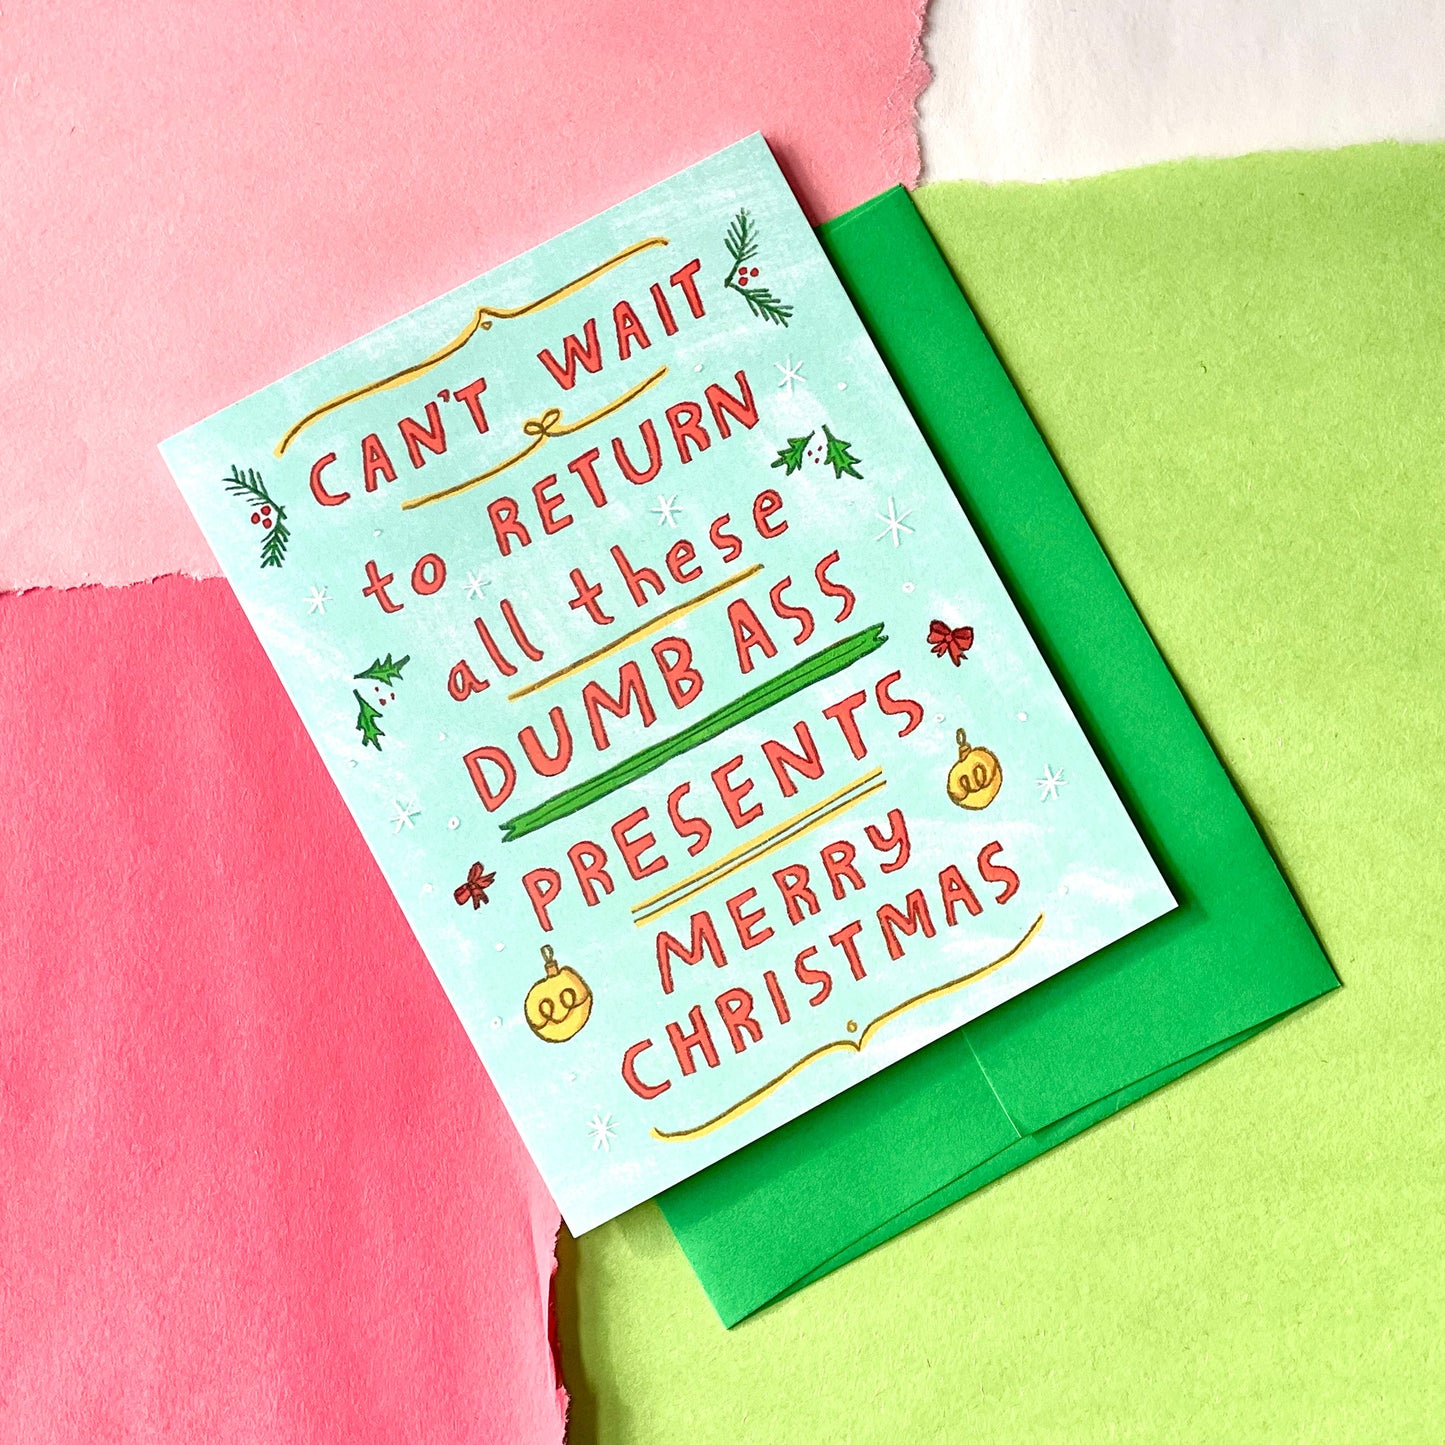 CAN'T WAIT
to RETURN
all these
DUMB ASS
PRESENTS
MERRY
CHRISTMAS